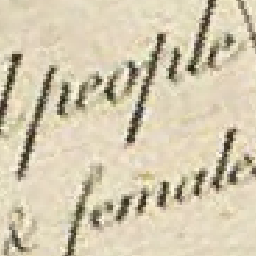 people
& female